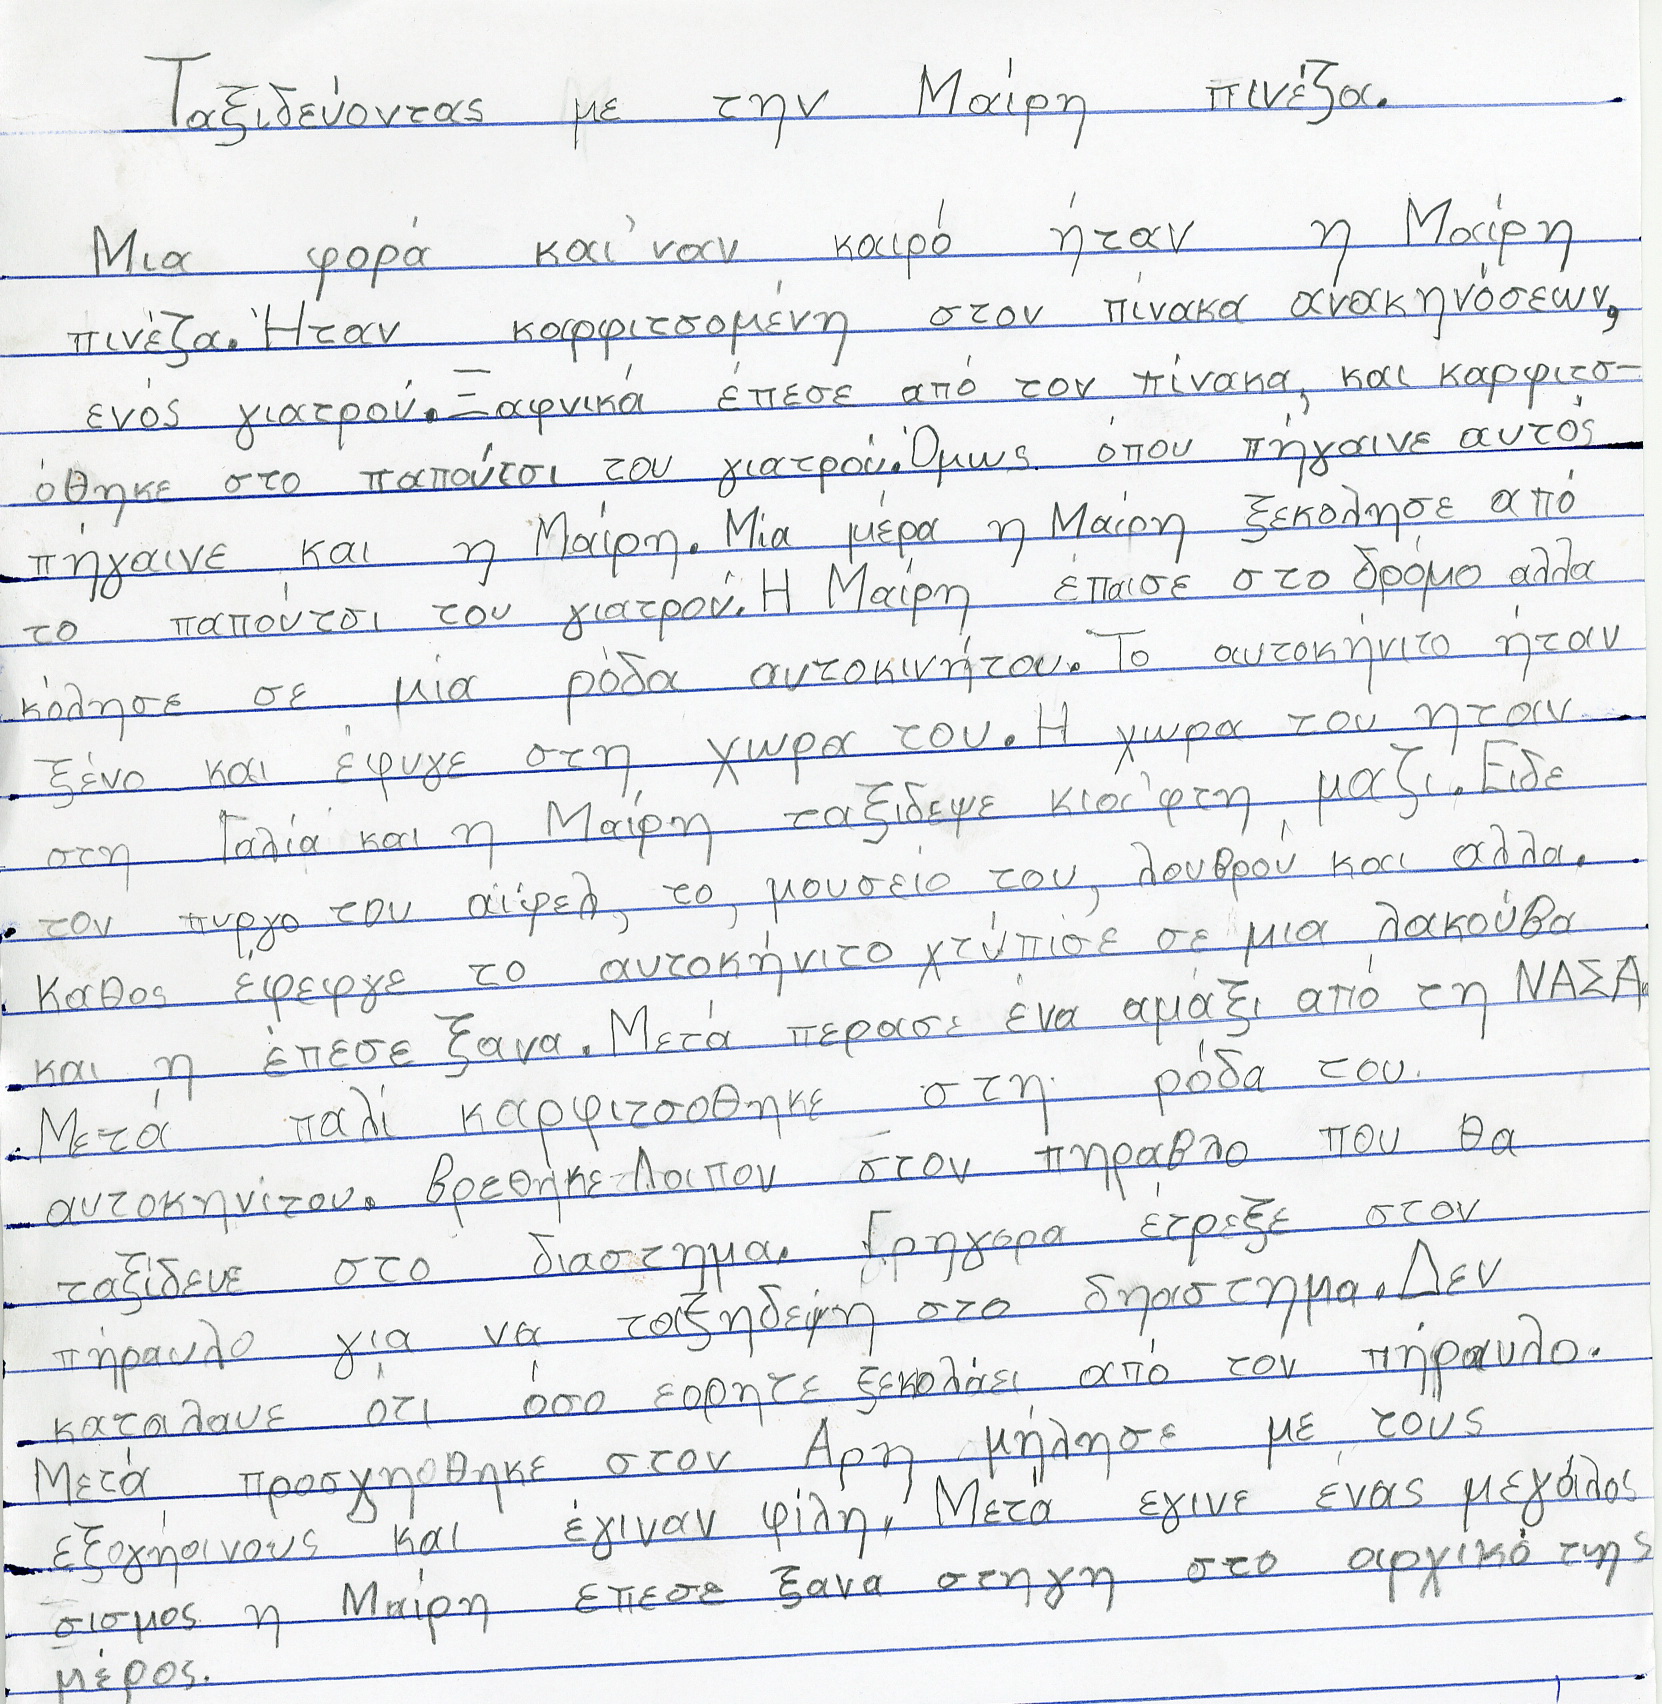 Ταξιδεύοντας με την Μαίρη πινέζα.
Μια φορά και 'ναν καιρό ήταν η Μαίρη
πινέζα. Ήταν καρφιτσομένη στον πίνακα ανακηνόσεων,
ενός γιατρού. Ξαφνικά έπεσε από τον πίνακα, και καρφιτσ-
όθηκε στο παπούτσι του γιατρού. Όμως όπου πήγαινε αυτός
πήγαινε και η Μαίρη. Μία μέρα η Μαίρη ξεκόλησε από
το παπούτσι του γιατρού. Η Μαίρη έπαισε στο δρόμο αλλα
κόλησε σε μία ρόδα αυτοκινήτου. Το αυτοκήνιτο ήταν
ξένο και έφυγε στη χωρα του. Η χωρα του ηταν
στη Γαλία και η Μαίρη ταξιδεψε κιαι 'φτη μαζί. Ειδε
τον πυργο του αίφελ, το, μουσείο του, λουβρού και αλλα.
Καθος έφεφγε το αυτοκήνιτο χτύπισε σε μια λακούβα
και η έπεσε ξανα. Μετά περασε ένα αμάξι από τη ΝΑΣΑ.
Μετά παλί καρφιτσοθηκε στη ρόδα του.
αυτοκηνίτου. Βρεθηκε λοιπον στον πηραβλο που θα
ταξίδευε στο διαστημα. Γρηγορα έτρεξε στον
πήραυλο για να ταξηδεψη στο δηαστημα. Δεν
καταλαυε ότι όσο εορητε ξεκολάει από τον πήραυλο.
Μετά προσγηοθηκε στον Αρη μήλησε με τους
εξογήοινους και έγιναν φίλη, Μετά εγινε ένας μεγάλος
σισμος η Μαίρη επεσε ξανα στηγη στο αρχικό της
μέρος.